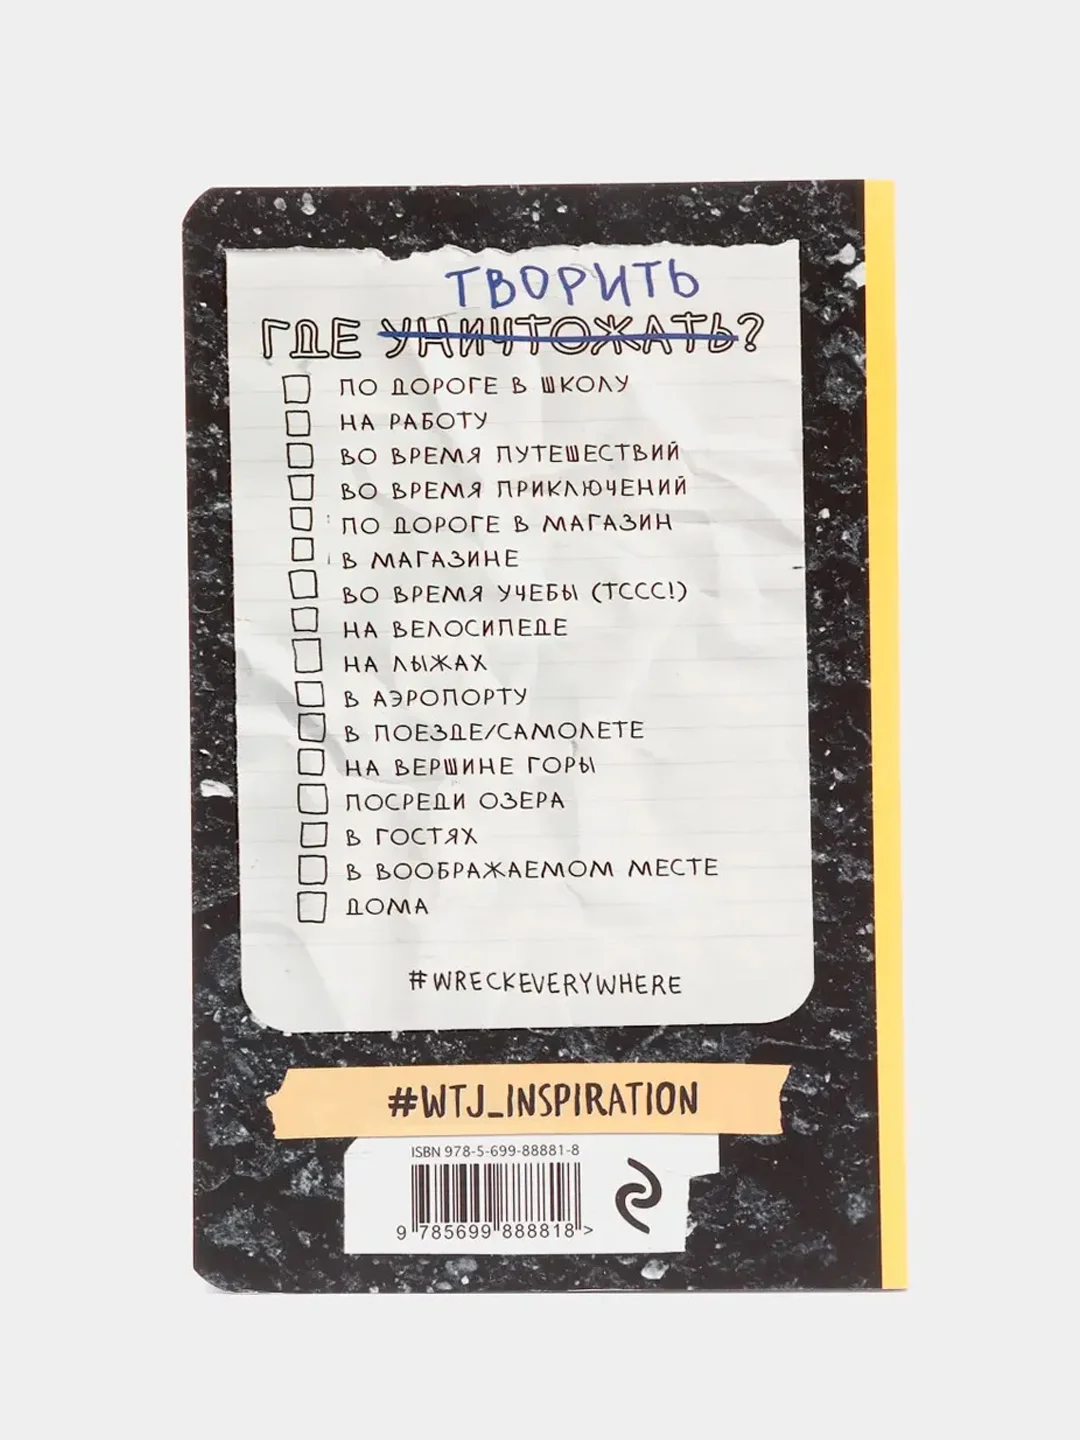 ТВОРИТЬ
ГДЕ УНИЧТОЖАТЬ?
ПО ДОРОГЕ В ШКОЛУ
НА РАБОТУ
ВО ВРЕМЯ ПУТЕШЕСТВИЙ
ВО ВРЕМЯ ПРИКЛЮЧЕНИЙ
ПО ДОРОГЕ В МАГАЗИН
В МАГАЗИНЕ
ВО ВРЕМЯ УЧЕБЫ (ТССС!)
НА ВЕЛОСИПЕДЕ
НА ЛЫЖАХ
В АЭРОПОРТУ
В ПОЕЗДЕ/САМОЛЕТЕ
НА ВЕРШИНЕ ГОРЫ
ПОСРЕДИ ОЗЕРА
В ГОСТЯХ
В ВООБРАЖАЕМОМ МЕСТЕ
ДОМА
#WRECKEVERYWHERE
#WTJ_INSPIRATION
ISBN 978-5-699-88881-8
9 785699 888818 >